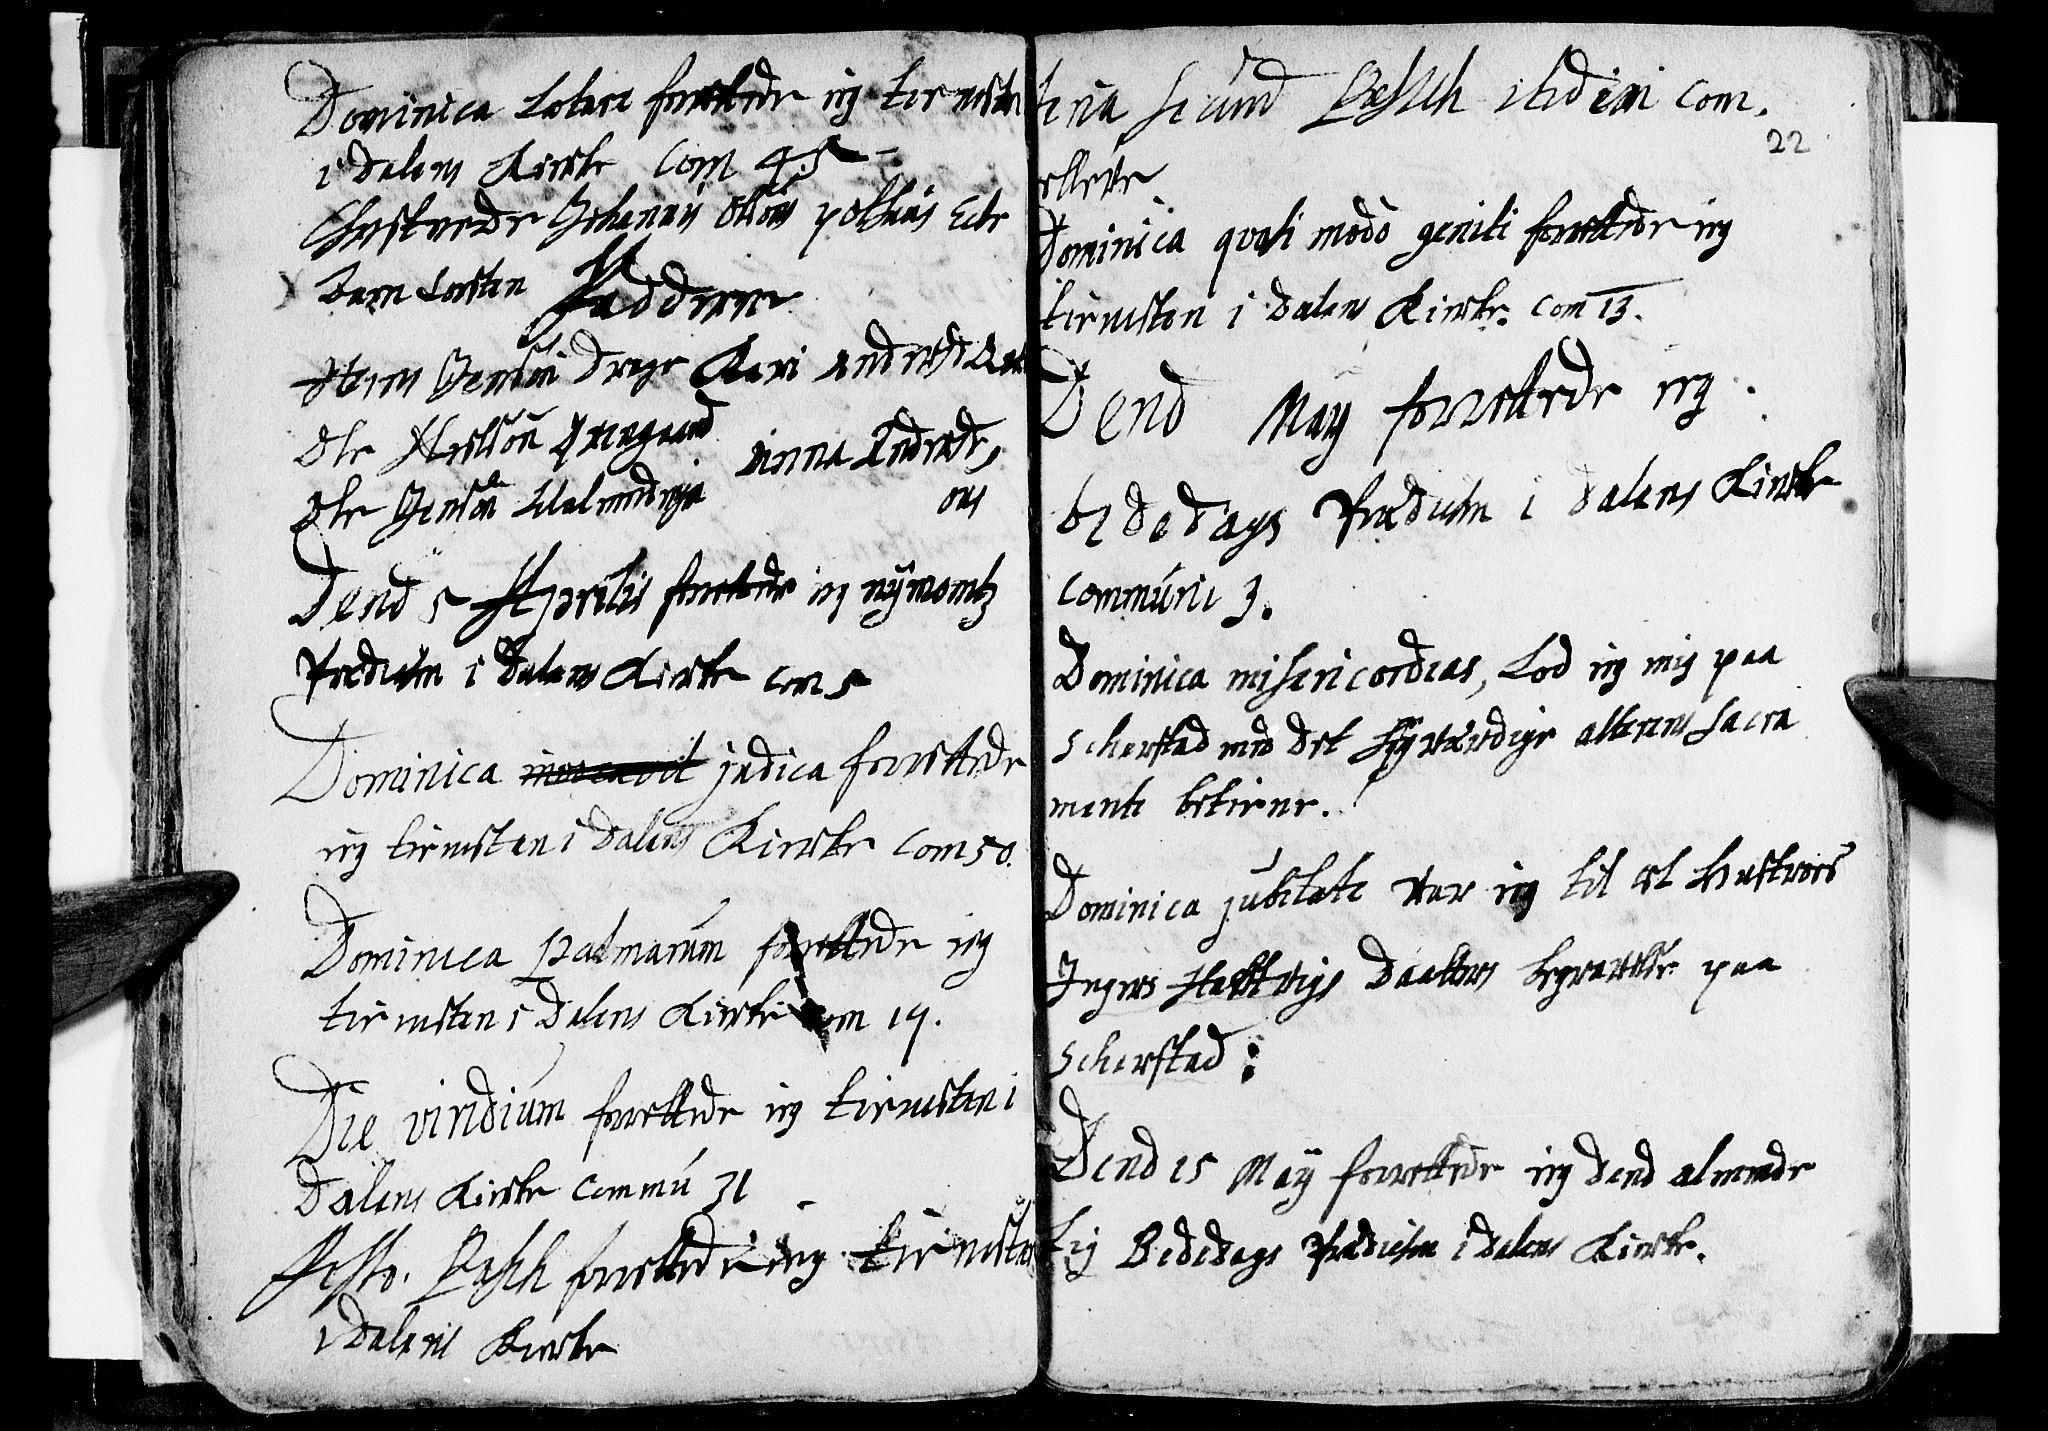 Dominica Letare forrettede ieg tienisten
i Dalens Kircke Com 45
Christnede Johannis Olsøns polheus Ecte
barn Torsten Fadderne
Jensøn Drage Kari Anders
Ole Nielsøn
Anna Anders,
Ole Jensøn
ons
Dend 5 Aprilis forrettede ieg nÿmontz
Prædichen i Dalens Kircke com 5
Dominica invocavit judica forrettede
ieg tienisten i Dalens Kircke Com 50.
Dominica Palmarum forrettede ieg
tienisten i Dalens Kircke com 19.
Die viridium forrettede ieg tienisten i
Dalens Kircke Commu 31
Festo. Pasch forrettede ieg tienisten
i Dalens Kircke
feria secund Pasch itidem Com.
22
elleve
Dominica qvasi modo geniti forrettede ieg
tienisten i Dalens Kircke. Com 13.
Dend May forrettede ieg
bededags Prædichen i Dalens Kircke
Communi 3.
Dominica misericordias, Lod ieg mig paa
Scherstad med det høÿværdige alterens Sacra
mente betiene.
Dominica jubilate var ieg til et hustrues
Ingers Daatters begravelse paa
Scherstad:
Dend 15 Maÿ forrettede ieg dend almende
lig Bededags Prædichen i Dalens Kircke.